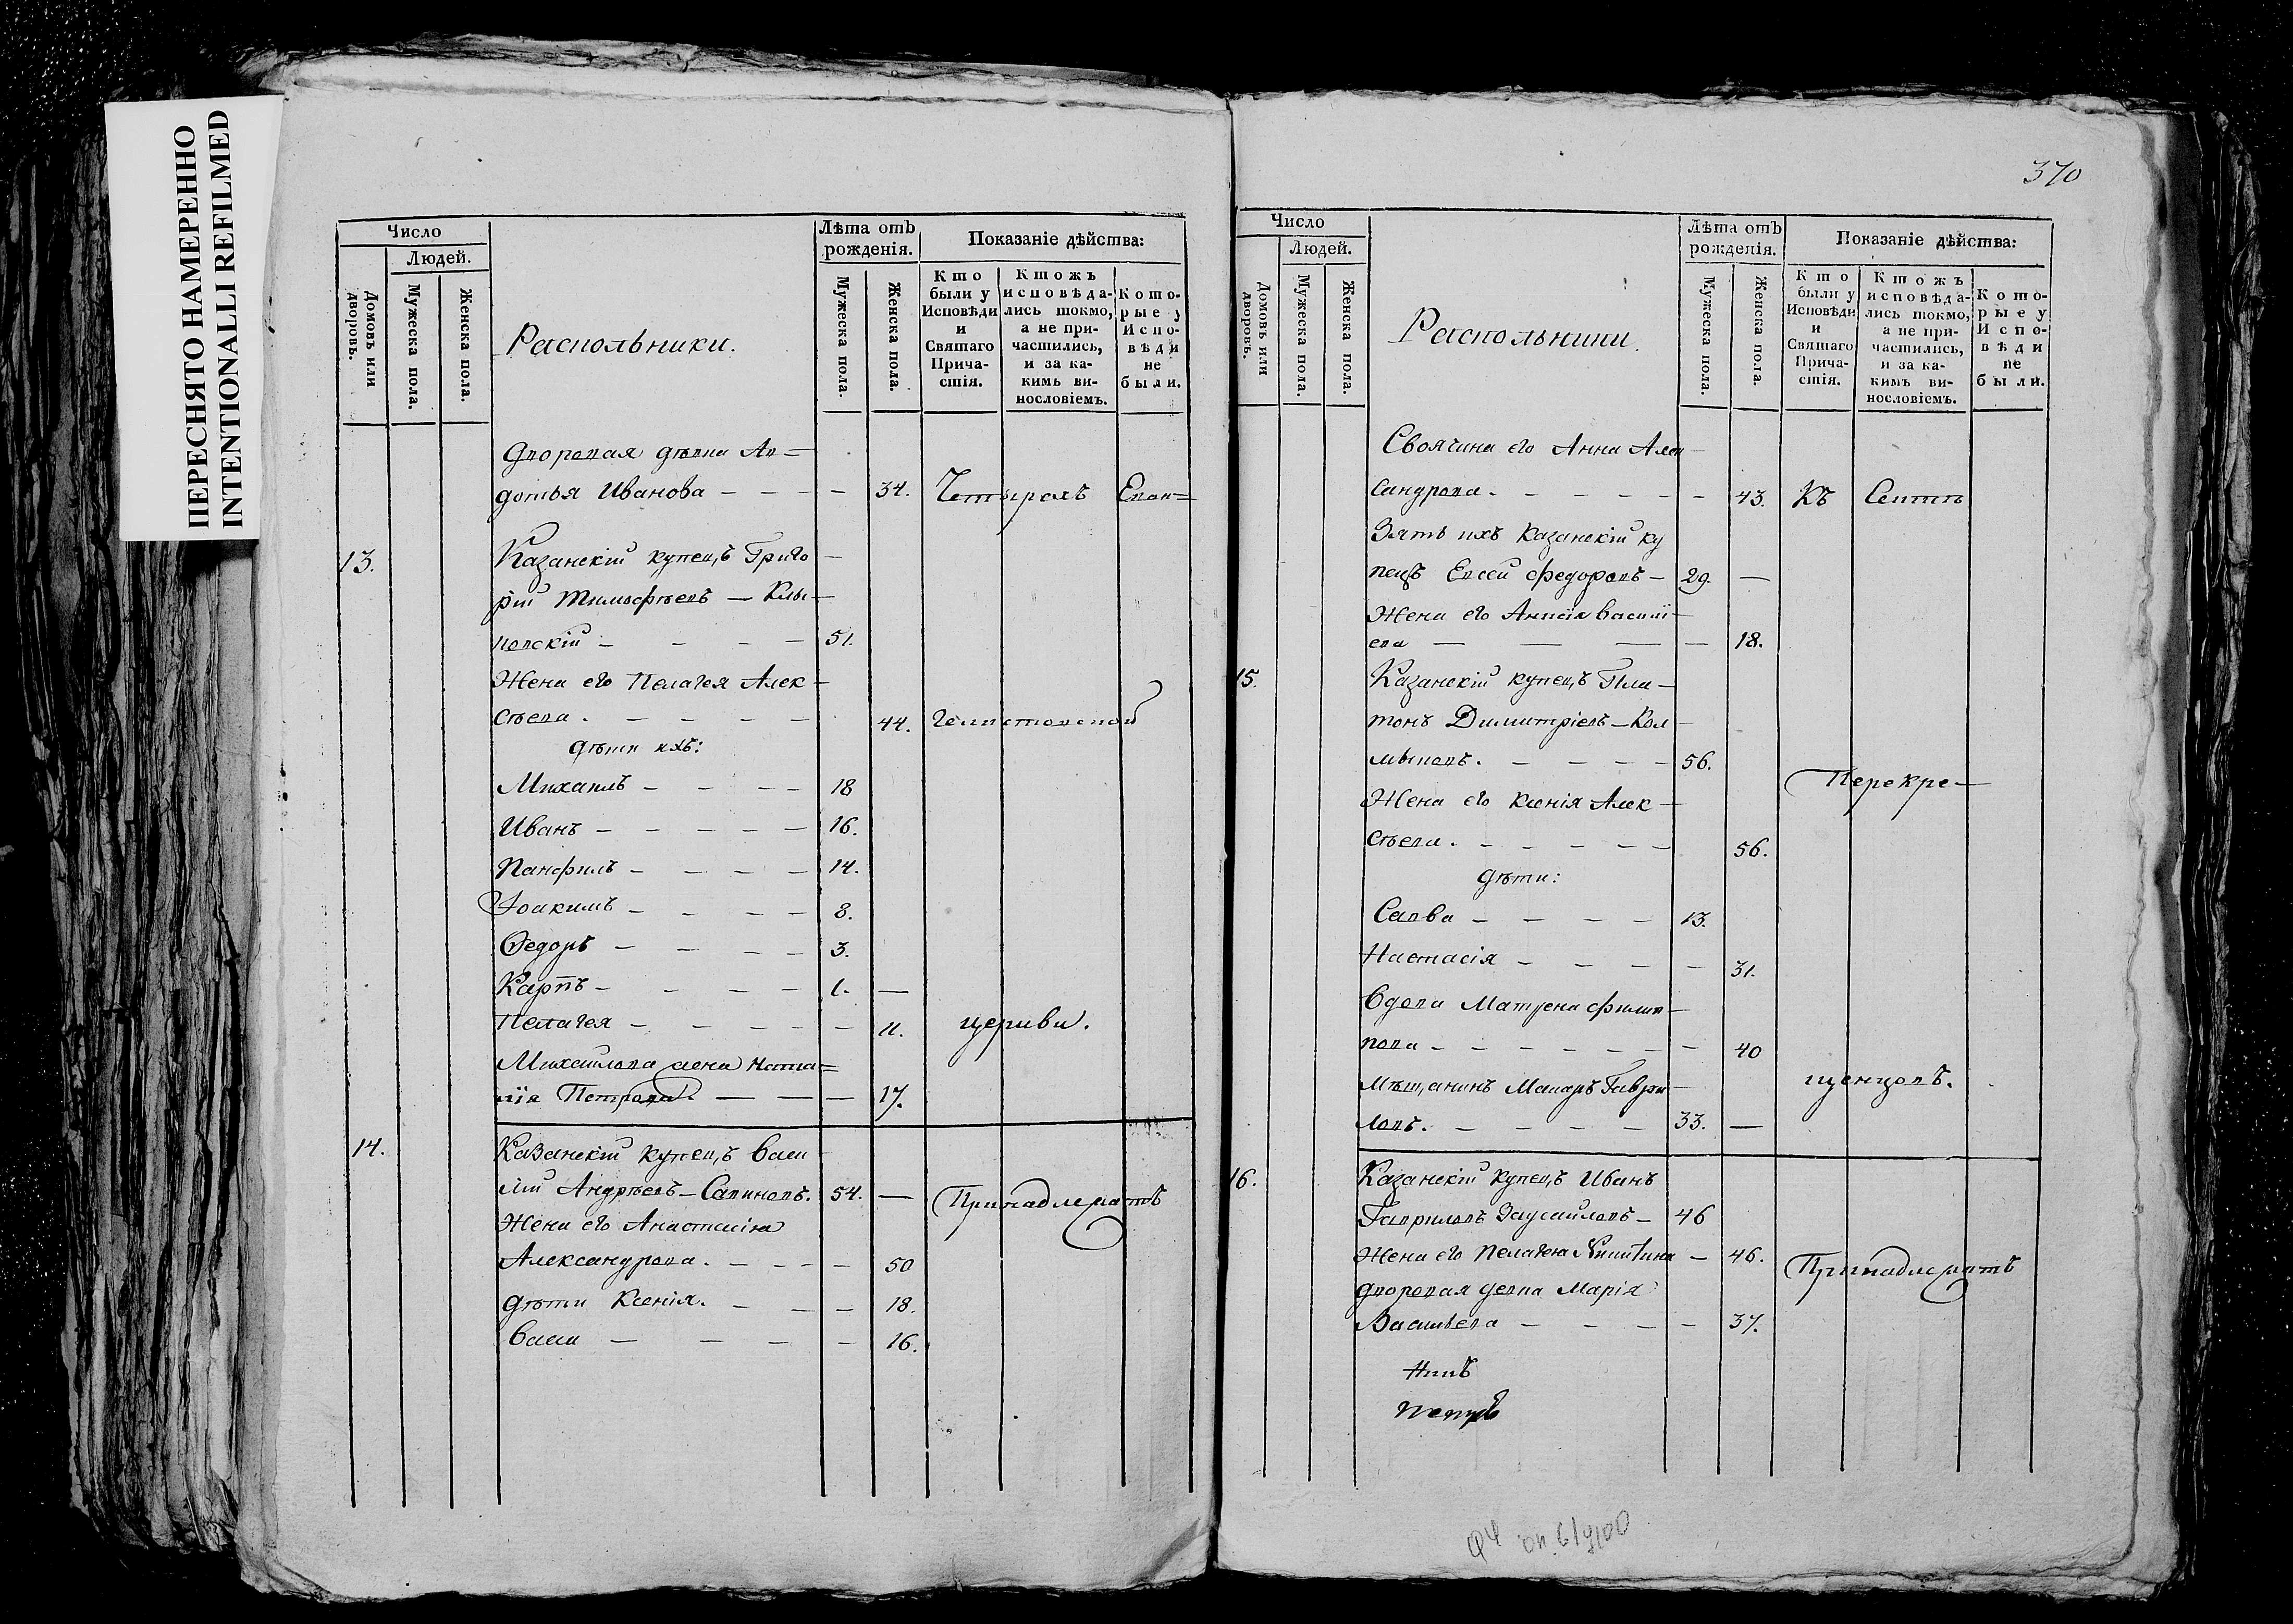 ПЕРЕСНЯТО НАМЕРЕННО
INTENTIONALLI REFILMED
Число
Людей.
Домовъ или дворовъ.
Мужеска пола.
Женска пола.
Раскольники.
Лѣта отъ рожденія.
Мужеска пола.
Женска пола.
Показаніе дѣйства:
Кто были у Исповѣди и Святаго Прича-стія.
Ктожъ исповѣда-лись токмо, а не при-частились, и за ка-кимъ ви-нословіемъ.
Кото-рые у Испо-вѣди не были.
Дворовая дѣвка Ав=
дотья Иванова — — — — 34. Четырехъ Еван=
13. Казанскій купецъ Григо
рій Тимофѣевъ —
— — — 51.
Жена его Пелагея Алек
сѣева. — — — — 44. гелистовской
дѣти ихъ:
Михаилъ — — — — 18
Иванъ — — — — — 16.
Панфилъ — — — — 14.
Іоакимъ — — — — 8.
Ѳедоръ — — — — 3.
Карпъ — — — — 1. —
Пелагея — — — — — 11. церкви.
Михайлова жена Ната=
лія Петрова. — — — 17.
14. Казанскій купецъ Васи
лій Андрѣевъ — Савиновъ. 54. — Принадлежатъ
Жена его Анастасія
Александрова. — — — — 50
дѣти Ксенія. — — — 18.
Васи — — — — 16.
370
Число
Людей.
Домовъ или дворовъ.
Мужеска пола.
Женска пола.
Раскольники.
Лѣта отъ рожденія.
Мужеска пола.
Женска пола.
Показаніе дѣйства:
Кто были у Исповѣди и Святаго Прича-стія.
Ктожъ исповѣда-лись токмо, а не при-частились, и за ка-кимъ ви-нословіемъ.
Кото-рые у Испо-вѣди не были.
Своячина его Анна Алек
сандрова. — — — — — — 43. Къ Сектѣ
Зять ихъ Казанскій ку
пецъ Евсей Федоровъ — 29 —
Жена его Васильі
ева — — — — 18.
15. Казанскій купецъ Пла —
тонъ Димитріевъ — Кол
мыковъ. — — — — 56.
Перекре —
Жена его Ксенія Алек —
сѣева. — — — — — 56.
дѣти:
Савва — — — — 13.
Настасія — — — — — 31.
Вдова Матрена Филип —
пова — — — — — — — 40
Мѣщанинъ Макаръ Гаври щенцовъ.
ловъ. — — — — 33. —
16. Казанскій купецъ Иванъ
Гавриловъ — 46
Жена его Пелагея Никитина — 46. Принадлежатъ
дворовая девка Марія
Васильева — — — — — 37.
ф4 оп.6/